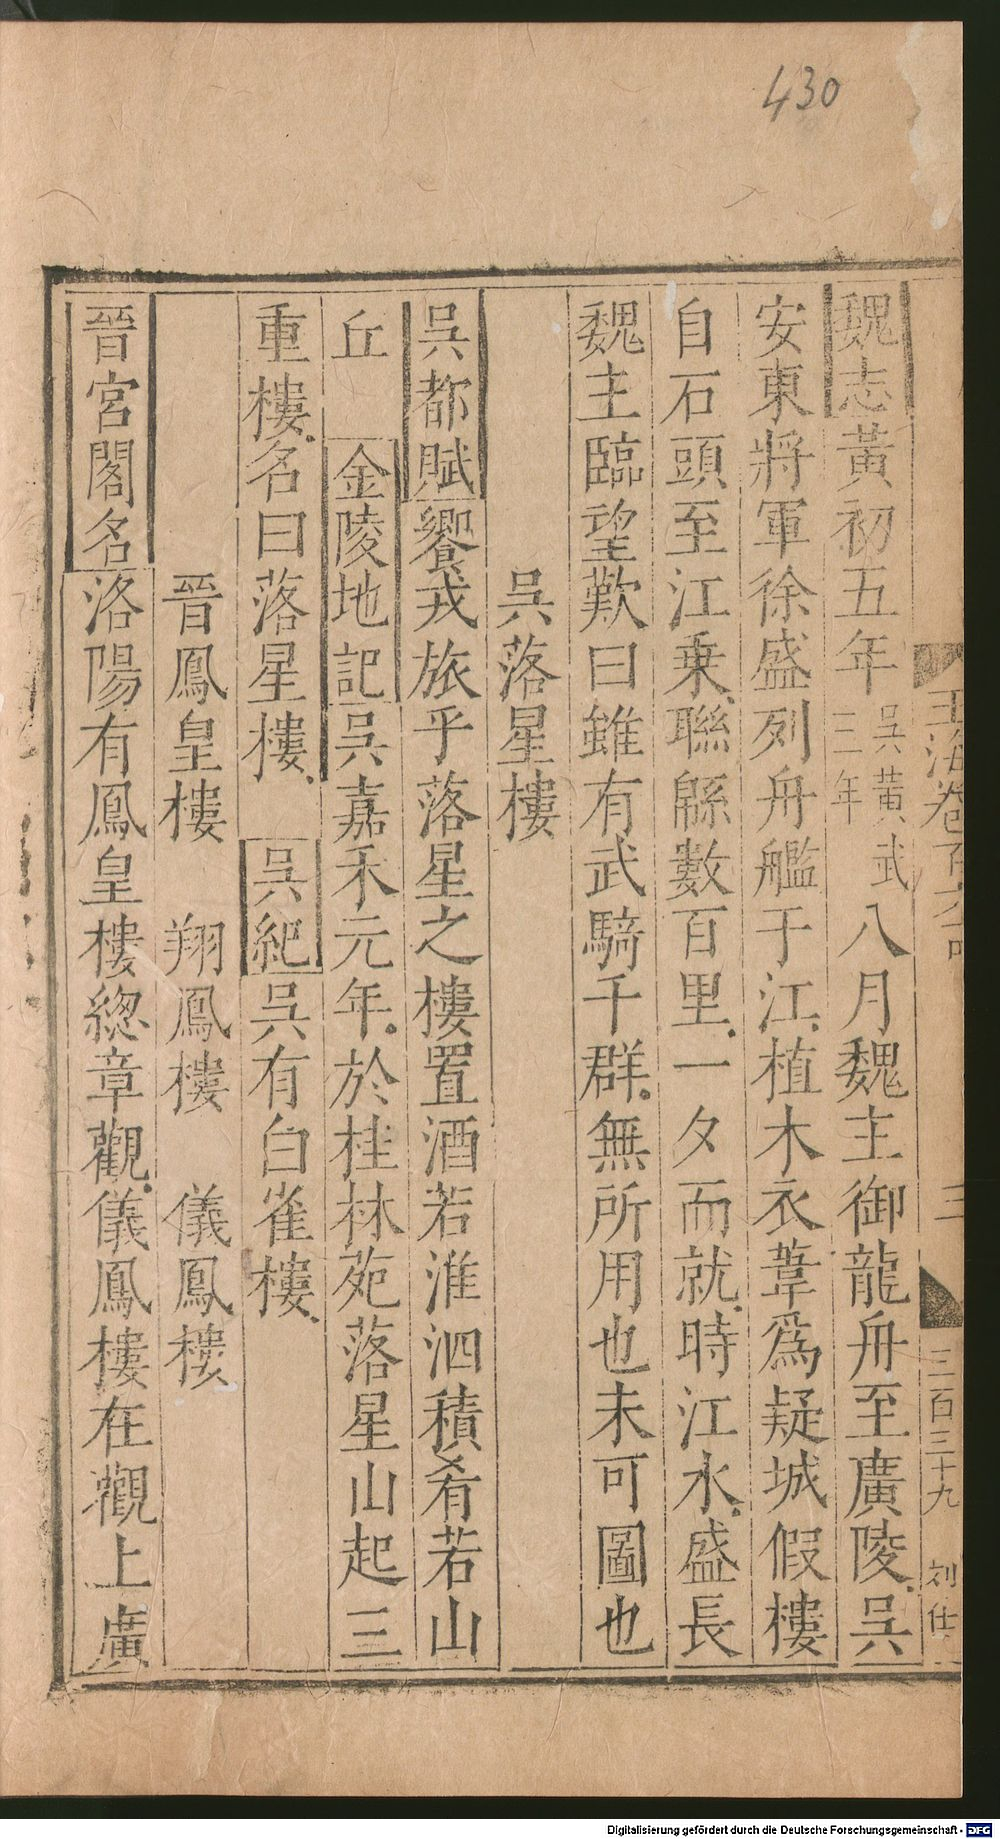 430
玉海卷百六十四
三
三百三十九
刘仕
魏志黃初五年吳黃武三年八月魏主御龍舟至廣陵吳
安東將軍徐盛列舟艦于江植木衣葦爲疑城假樓
自石頭至江乗聯緜數百里一夕而就時江水盛長
魏主臨望歎曰雖有武騎千群無所用也未可圖也
吳落星樓
吳都賦饗戎旅乎落星之樓置酒若淮泗積肴若山
丘 金陵地記吳嘉禾元年於桂林苑落星山起三
重樓名曰落星樓 吳紀吳有白雀樓
晉鳳皇樓 翔鳳樓 儀鳳樓
晉宮閣名洛陽有鳳皇樓緫章觀儀鳳樓在觀上廣
Digitalisierung gefördert durch die Deutsche Forschungsgemeinschaft - DFG